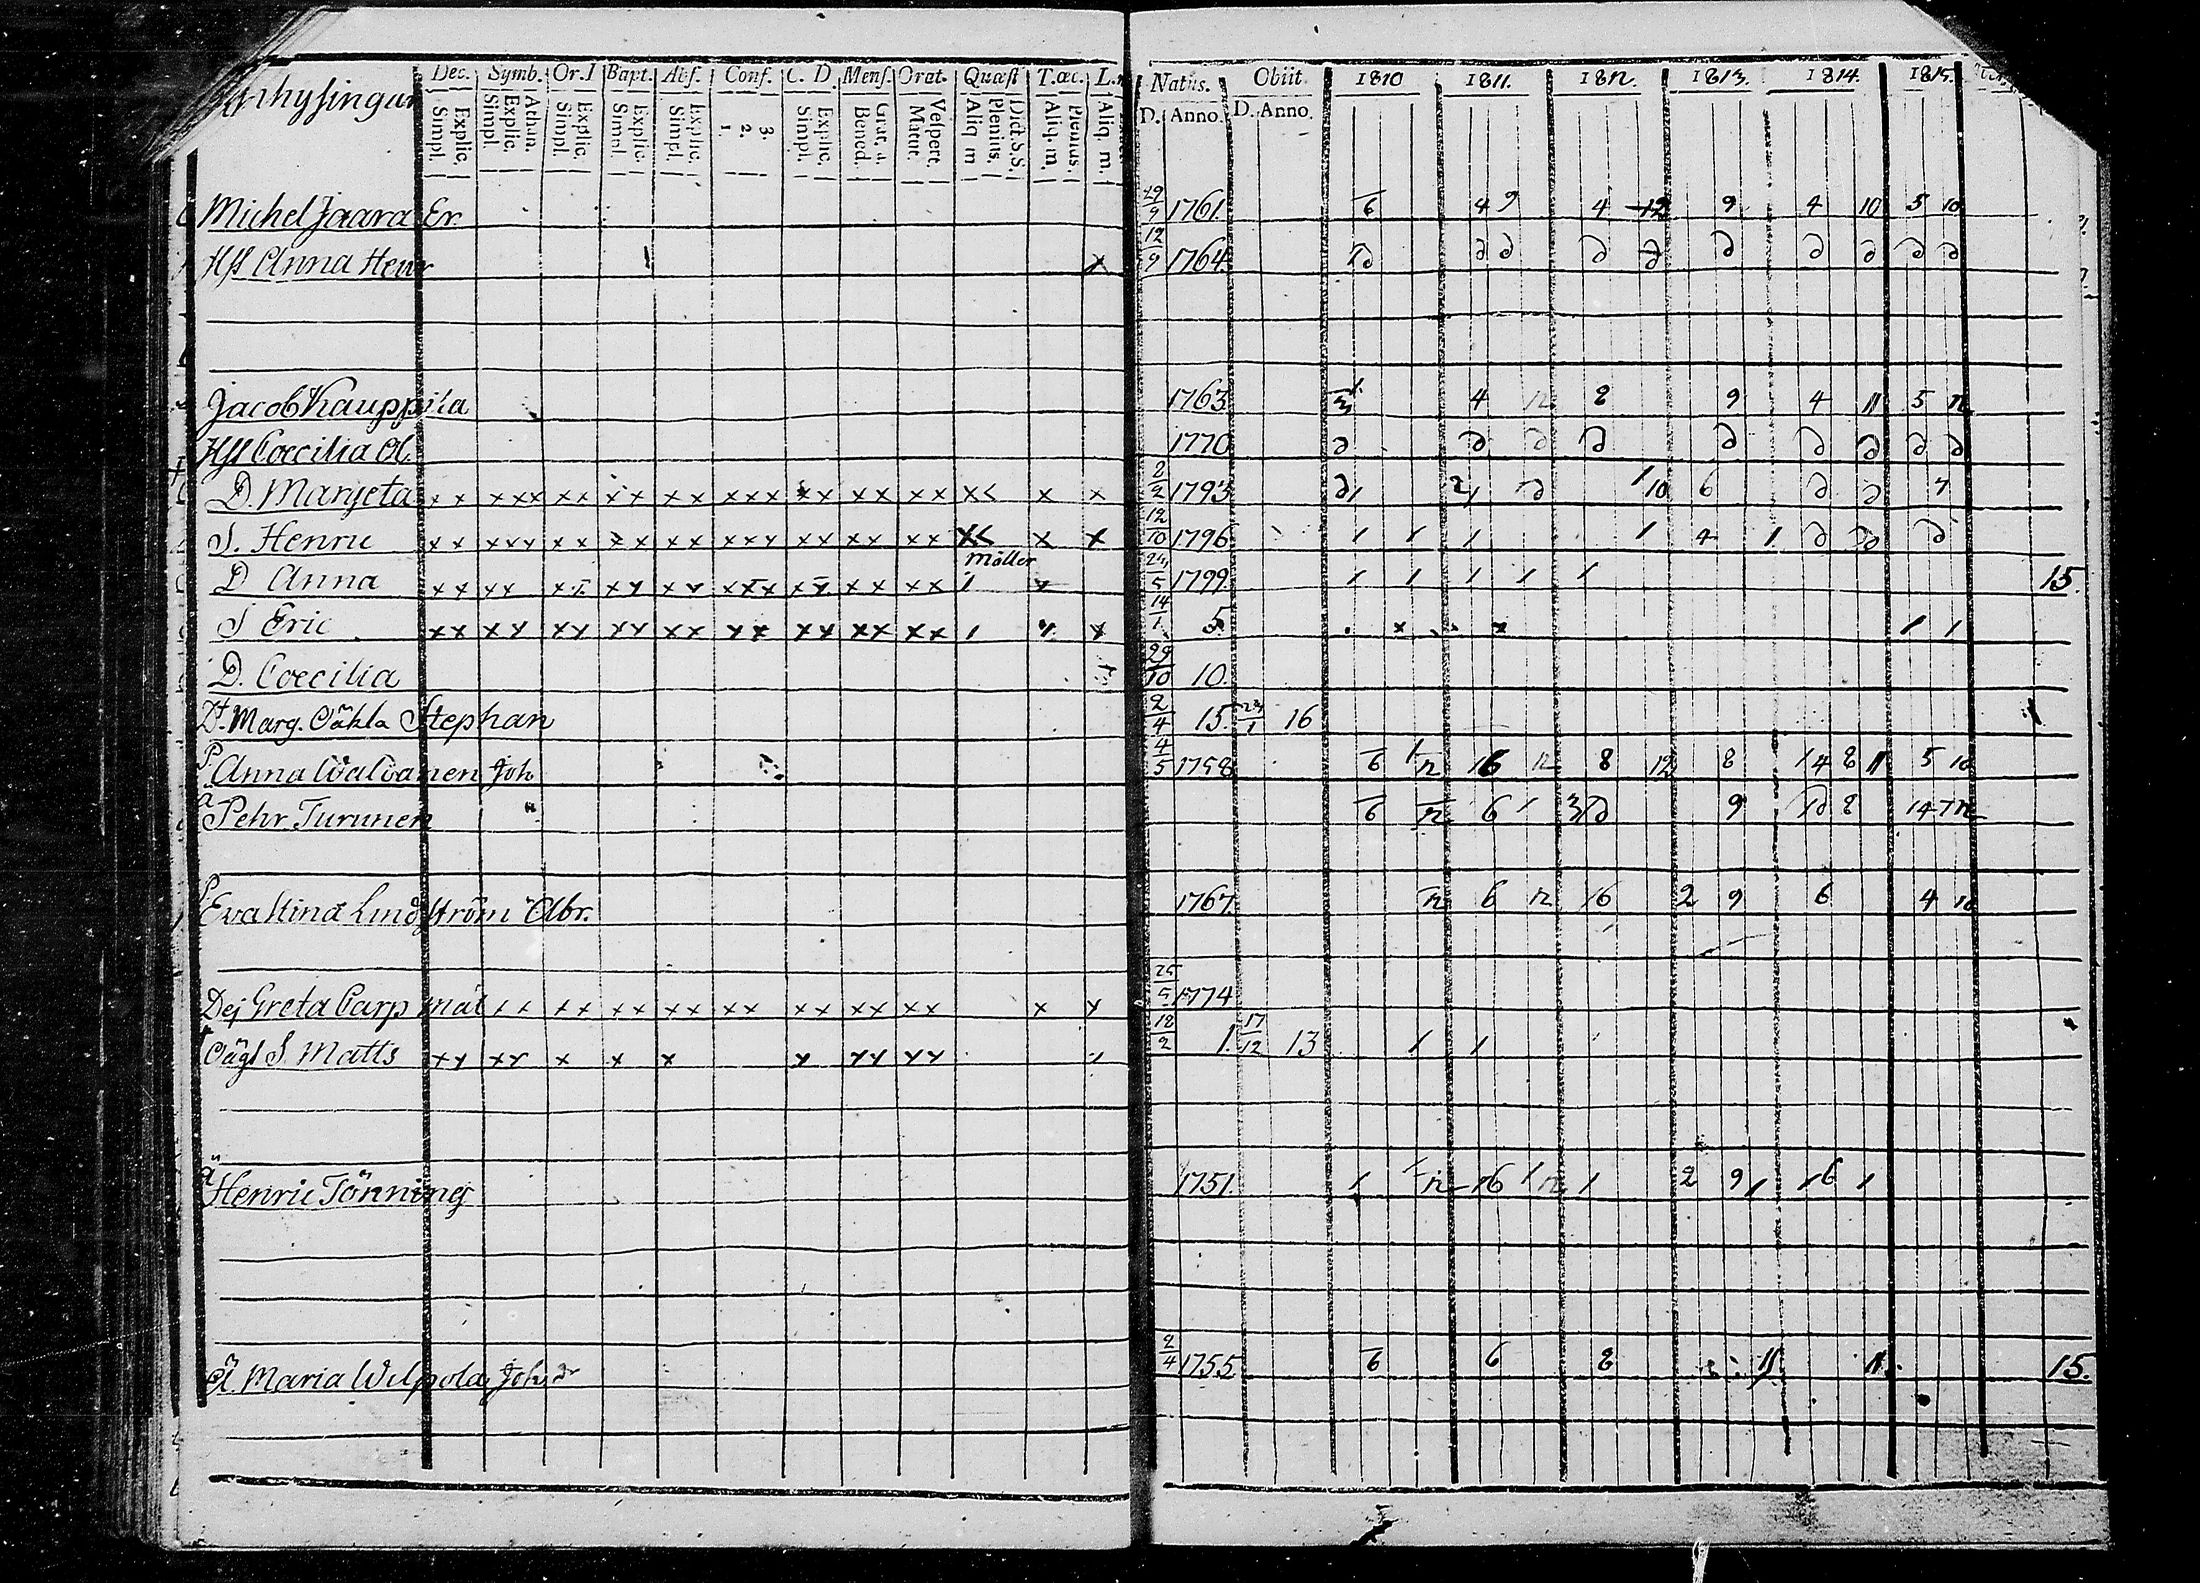 Dec. Symb. Or. I Bapt. Abſ. Conf. C. D. Menſ. Orat. Quæſt T. œc. L.
Explic. Simpl. Athan. Explic. Simpl. Explic. Simpl. Explic. Simpl. Explic. Simpl. 3. 2. 1. Explic. Simpl. Grat. a. Bened. Veſpert. Matut. Dict. S. S. Plenius. Aliq m Plenius. Aliq. m. Aliq. m.
Natus. Obiit. 1810 1811. 1812. 1813. 1814. 1815.
D. Anno. D. Anno.
Michel Jaara Er. 29/9 1761. 6 4 9 4 12 9 4 10 5 10
Hſt Anna Henr x 12/9 1764
Jacob Kauppila 1763 4 12 8 9 4 11 5 12
Hſt Coecilia Ol. 1770
D. Marjeta x x x x x x x x x x x x x x x x x x x x x x x 2/2 1793 10 6 7
S. Henric x x x x x x x x x x x x x x x x x x x x x x 12/10 1796 1 1 1 1 4 1
Möller
D Anna x x x x x x x x x x x x x x x x x x x x 1 x 24/5 1799. 1 1 1 1 1 15.
S Eric x x x x x x x x x x x x x x x x x x 1 x x 14/1 5. x x 1 1
D. Coecilia 29/10 10.
Dr. Marg. Oäkta Stephan 2/4 15. 23/1 16
P. Anna Walvanen Joh 4/5 1758 6 12 16 12 8 12 8 14 8 11 5 10
Pehr Turunen 6 12 6 1 3 9 8 14 7 12
P Eva Stina Lindström Abr. 1767. 12 6 12 16 2 9 6 4 10
Dej Greta Carp mäl x x x x x x x x x x x x x x x x x x 25/5 1774
Oägt S. Matts x x x x x x x x x x x x x 18/2 1. 17/12 13 1 1
Henric Tönning 1751. 1 12 16 1 12 1 2 9 1 1 6 1
Ä. Maria Wilpola Joh dr 2/4 1755 6 6 8 11 11. 15.